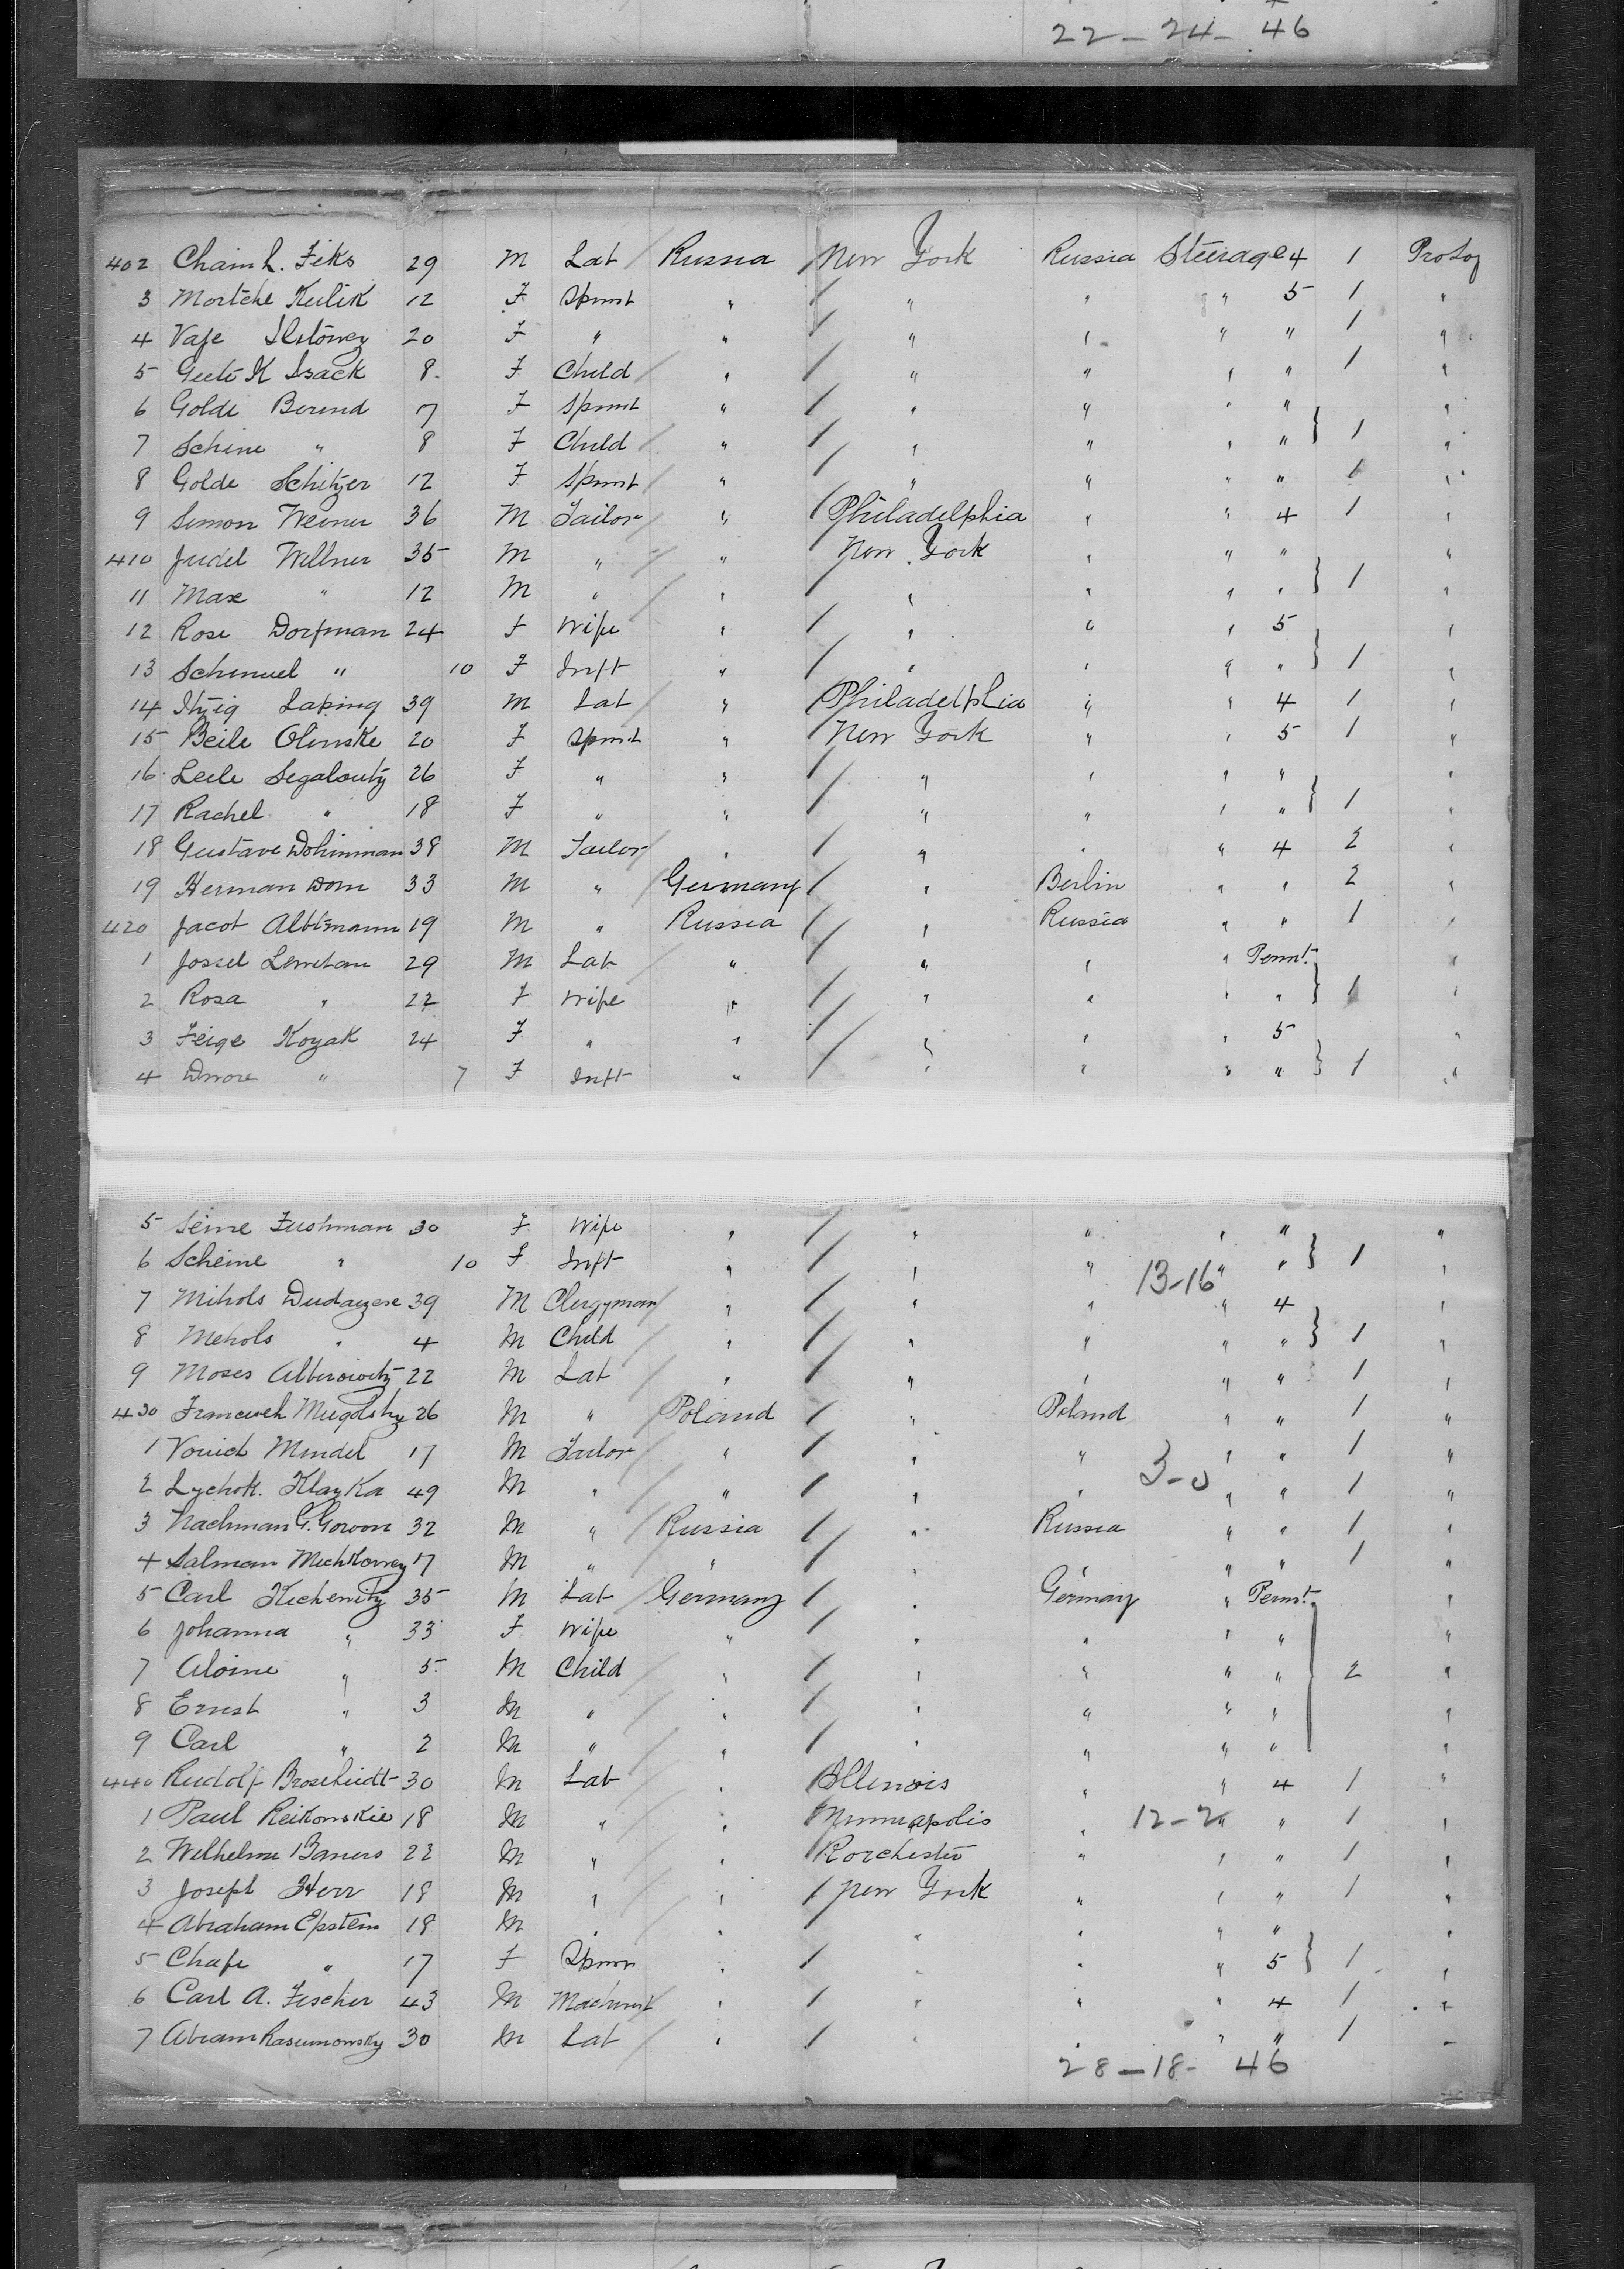 22 - 24 - 46
402 Chaim L. Fiks 29 M Lab Russia New York Russia Steerage 4 1 Pro Log
3 Mortche Kulik 12 F Spinst " " " " 5 1 "
4 Vafe 20 F " " " " " " 1 "
5 K Isack 8 F Child " " " " " 1 "
6 Golde Berend 7 F Spinst " " " " " "
7 Schine " 8 F Child " " " " " 1 "
8 Golde Schitzer 12 F Spinst " " " " " 1 "
9 Simon Weiner 36 M Tailor " Philadelphia " " 4 1 "
410 Judel Wellner 35 M " " New York " " " "
11 Max " 12 M " " " " " " 1 "
12 Rose Dorfman 24 F Wife " " " " 5 "
13 Schmuel " 10 F Inft " " " " " 1 "
14 Itzig Laping 39 M Lab " Philadelphia " " 4 1 "
15 Beile Olinske 20 F Spinst " New York " " 5 1 "
16 Leele Segaloutz 26 F " " " " " " "
17 Rachel " 18 F " " " " " " 1 "
18 Gustave Dohinman 38 M Tailor " " " " 4 2 "
19 Herman Dorn 33 M " Germany " Berlin " " 2 "
420 Jacob Altmann 19 M " Russia " Russia " " 1 "
1 Jossel Lewitan 29 M Lab " " " " Permt. "
2 Rosa " 22 F Wife " " " " " 1 "
3 Feige Kozak 24 F " " " " " 5 "
4 Dwore " 7 F Inft " " " " " 1 "
5 Seine Fushman 30 F Wife " " " " " "
6 Scheine " 10 F Inft " " " 13-16 " " 1 "
7 Mihols 39 M Clergyman " " " " 4 "
8 Mehols " 4 M Child " " " " " 1 "
9 Moses Alberowitz 22 M Lab " " " " " 1 "
430 Mugolsky 26 M " Poland " Poland " " 1 "
1 Mendel 17 M Tailor " " " " " 1 "
2 Lychok. Klayka 49 M " " " " 3-0 " " 1 "
3 Nachman G. Gowon 32 M " Russia " Russia " " 1 "
4 Salman 17 M " " " " " " 1 "
5 Carl 35 M Lab Germany " Germany " Permt. "
6 Johanna " 33 F Wife " " " " " "
7 Aloine " 5 M Child " " " " " 2 "
8 Ernest " 3 M " " " " " " "
9 Carl " 2 M " " " " " " "
440 Rudolf Broscheidt 30 M Lab " Illinois " " 4 1 "
1 Paul Reikowskie 18 M " " Minneapolis " 12-2 " " 1 "
2 Wilhelm 22 M " " Rorchester " " " 1 "
3 Joseph Herr 18 M " " New York " " " 1 "
4 Abraham Epstein 18 M " " " " " " "
5 Chafe " 17 F Spinn " " " " 5 1 "
6 Carl A. Fischer 43 M Machinist " " " " 4 1 "
7 Abram Rasumowsky 30 M Lab " " " " " 1 "
28 - 18 - 46